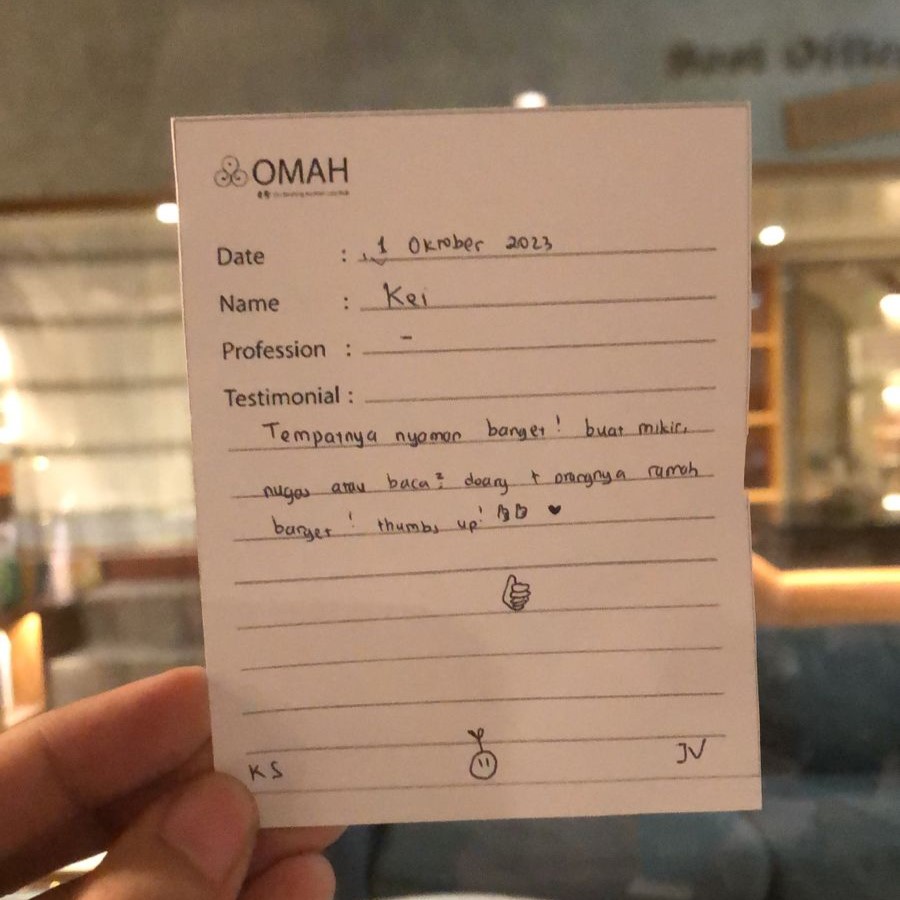 OMAH
Date : 1 Oktober 2023
Name : Kei
Profession : -
Testimonial :
Tempatnya nyaman banget! buat mikir,
nugas atau baca²; doany + orangnya ramah
banget! thumbs up! ♥
KS
JV